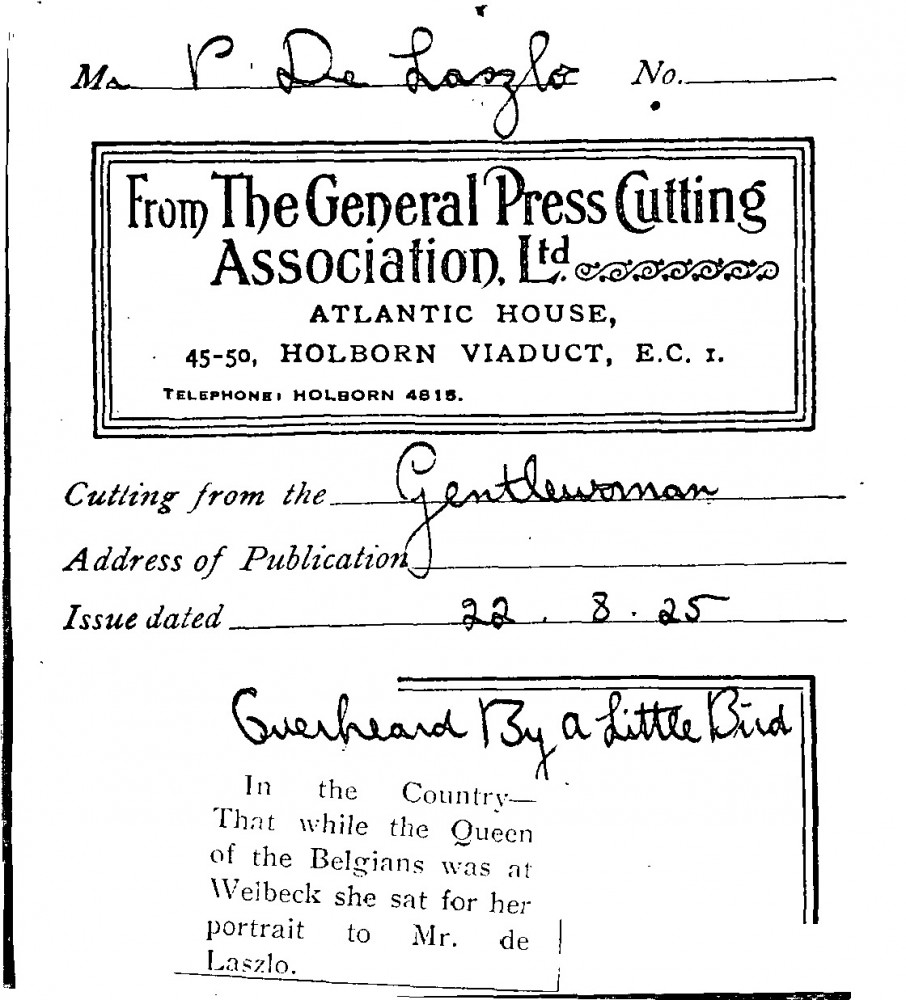 Mr P De Laszlo No.
From The General Press Cutting
Association, Ltd.
ATLANTIC HOUSE,
45-50, HOLBORN VIADUCT, E.C. 1.
TELEPHONE: HOLBORN 4815.
Cutting from the Gentlewoman
Address of Publication
Issue dated 22 . 8 . 25
Overheard By a Little Bird
In the Country—
That while the Queen
of the Belgians was at
Welbeck she sat for her
portrait to Mr. de
Laszlo.